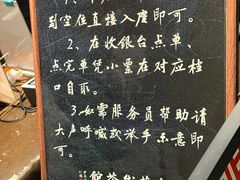 到空位直接入座即可。
2、在收银台点单、
点完单凭小票在对应档
口自取。
3、如需服务员帮助请
大声呼喊或举手示意即
可。